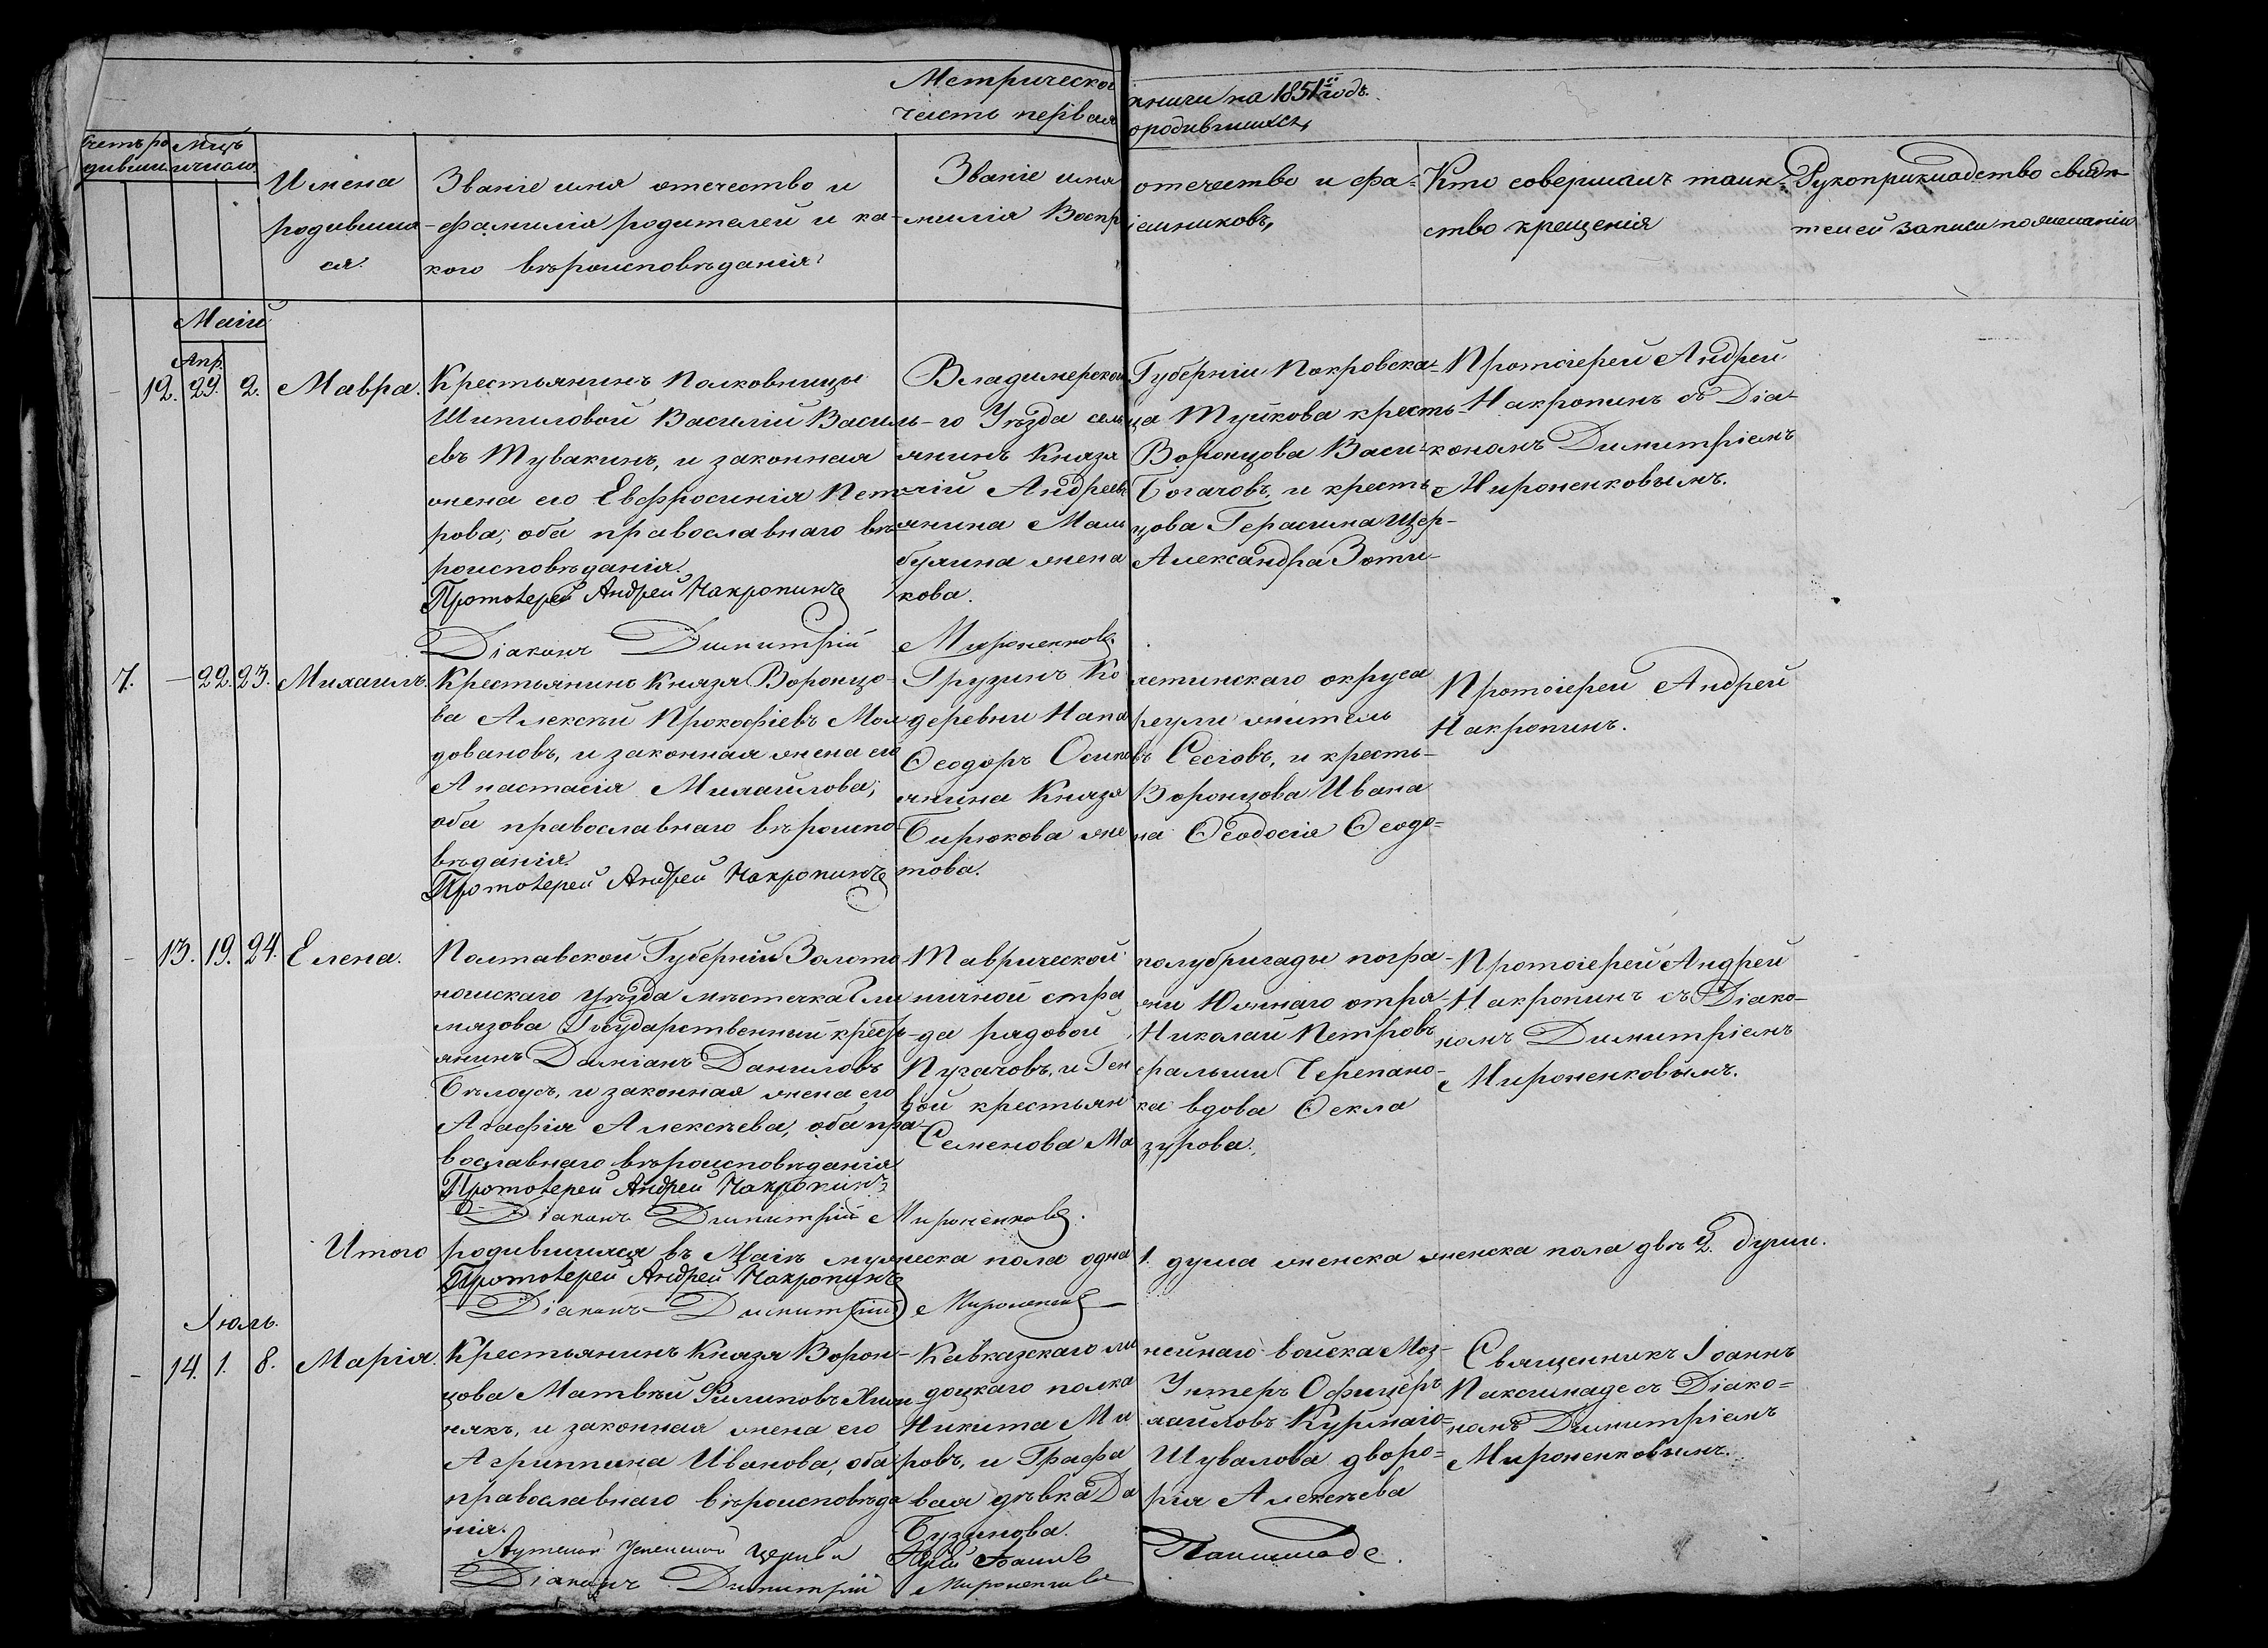 Метрической книги на 1851й годъ.
часть первая о родившихся
Счетъ родивши. Мцъ и число.
Имена родившихся.
Званіе имя отечество и
фамилія родителей и ка-
кого вѣроисповѣданія
Званіе имя отечество и фа-
милія Воспріемниковъ,
Кто совершалъ таин-
ство крещенія
Рукоприкладство свидѣ-
телей записи по желанію
Маій
Апр.
12. 29. 2. Мавра.
Крестьянинъ Полковницы
Шипиловой Василій Василь-
евъ Тувакинъ, и законная
жена его Евфросинія Пет-
рова; оба православнаго вѣ-
роисповѣданія.
Протоіерей Андрей Накропинъ
Діаконъ Димитрій Мироненковъ
Владимерской Губерніи Покровска-
го Уѣзда сельца Туйкова кресть-
янинъ Князя Воронцова Васи-
лій Андреевъ Богачовъ, и кресть
янина Мальцова Герасима Щер-
булина жена Александра Зоти-
кова.
Протоіерей Андрей
Накропинъ съ Діа-
кономъ Димитріемъ
Мироненковымъ.
7. 22. 23. Михаилъ.
Крестьянинъ Князя Воронцо-
ва Алексѣй Прокофіевъ Мол
довановъ, и законная жена его
Анастасія Михаилова;
оба православнаго вѣроиспо-
вѣданія.
Протоіерей Андрей Накропинъ
Грузинъ Ко летинскаго округа
деревни Напа реули житель
Ѳеодоръ Осиповъ Сесіовъ, и кресть-
янина Князя Воронцова Ивана
Бирюкова жена Ѳеодосія Ѳеодо-
това.
Протоіерей Андрей
Накропинъ.
13. 19. 24. Елена.
Полтавской Губерніи Золото
ношскаго Уѣзда мѣстечка Гли
мязова Государственный крест-
янинъ Даміанъ Даниловъ
Бѣлоусъ, и законная жена его
Агафія Алексѣева, оба пра
вославнаго вѣроисповѣданія
Протоіерей Андрей Накропинъ
Діаконъ Димитрій Мироненковъ.
Таврической полубригады погра-
ничной стражи Южнаго отря-
да рядовой Николай Петровъ
Пугачовъ, и Генеральши Черепано-
вой крестьянка вдова Ѳекла
Семенова Мазурова.
Протоіерей Андрей
Накропинъ съ Діако-
номъ Димитріемъ
Мироненковымъ.
Итого родившихся въ Маіѣ мужеска пола одна 1. душа женска женска пола двѣ 2. души.
Протоіерей Андрей Накропинъ
Діаконъ Димитрій Мироненковъ
Іюль.
14. 1. 8. Марія.
Крестьянинъ Князя Ворон-
цова Матвѣй Филиповъ
някъ, и законная жена его
Агриппина Иванова, оба
православнаго вѣроисповѣда
нія.
Аутской Успенской церкви Іоаннъ Паксимаде.
Діаконъ Димитрій Мироненковъ
Кавказскаго линейнаго войска Моз-
доцкаго полка Унтеръ Офицеръ
Никита Михаиловъ Курмаго-
ровъ, и Графа Шувалова дворо-
вая дѣвка Дарія Алексѣева
Бузинова.
Священникъ Іоаннъ
Паксимаде съ Діако=
номъ Димитріемъ
Мироненковымъ.